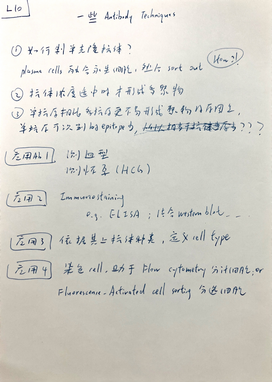 L10
一些 Antibody Techniques
① 如何制单克隆抗体?
How?!
plasma cells 融合永生细胞, 然后 sort out
② 抗体浓度适中时才形成复合物
③ 单抗
单抗 epitope ???
应用例1 测血型
测怀孕 (HCG)
应用2 Immunostaining
e.g. ELISA ; 结合 western blot...
应用3 依据其上抗体种类, 定义 cell type
应用4 染色 cell, 助于 Flow cytometry 分计细胞, or
Fluorescence-Activated cell sorting 分选细胞